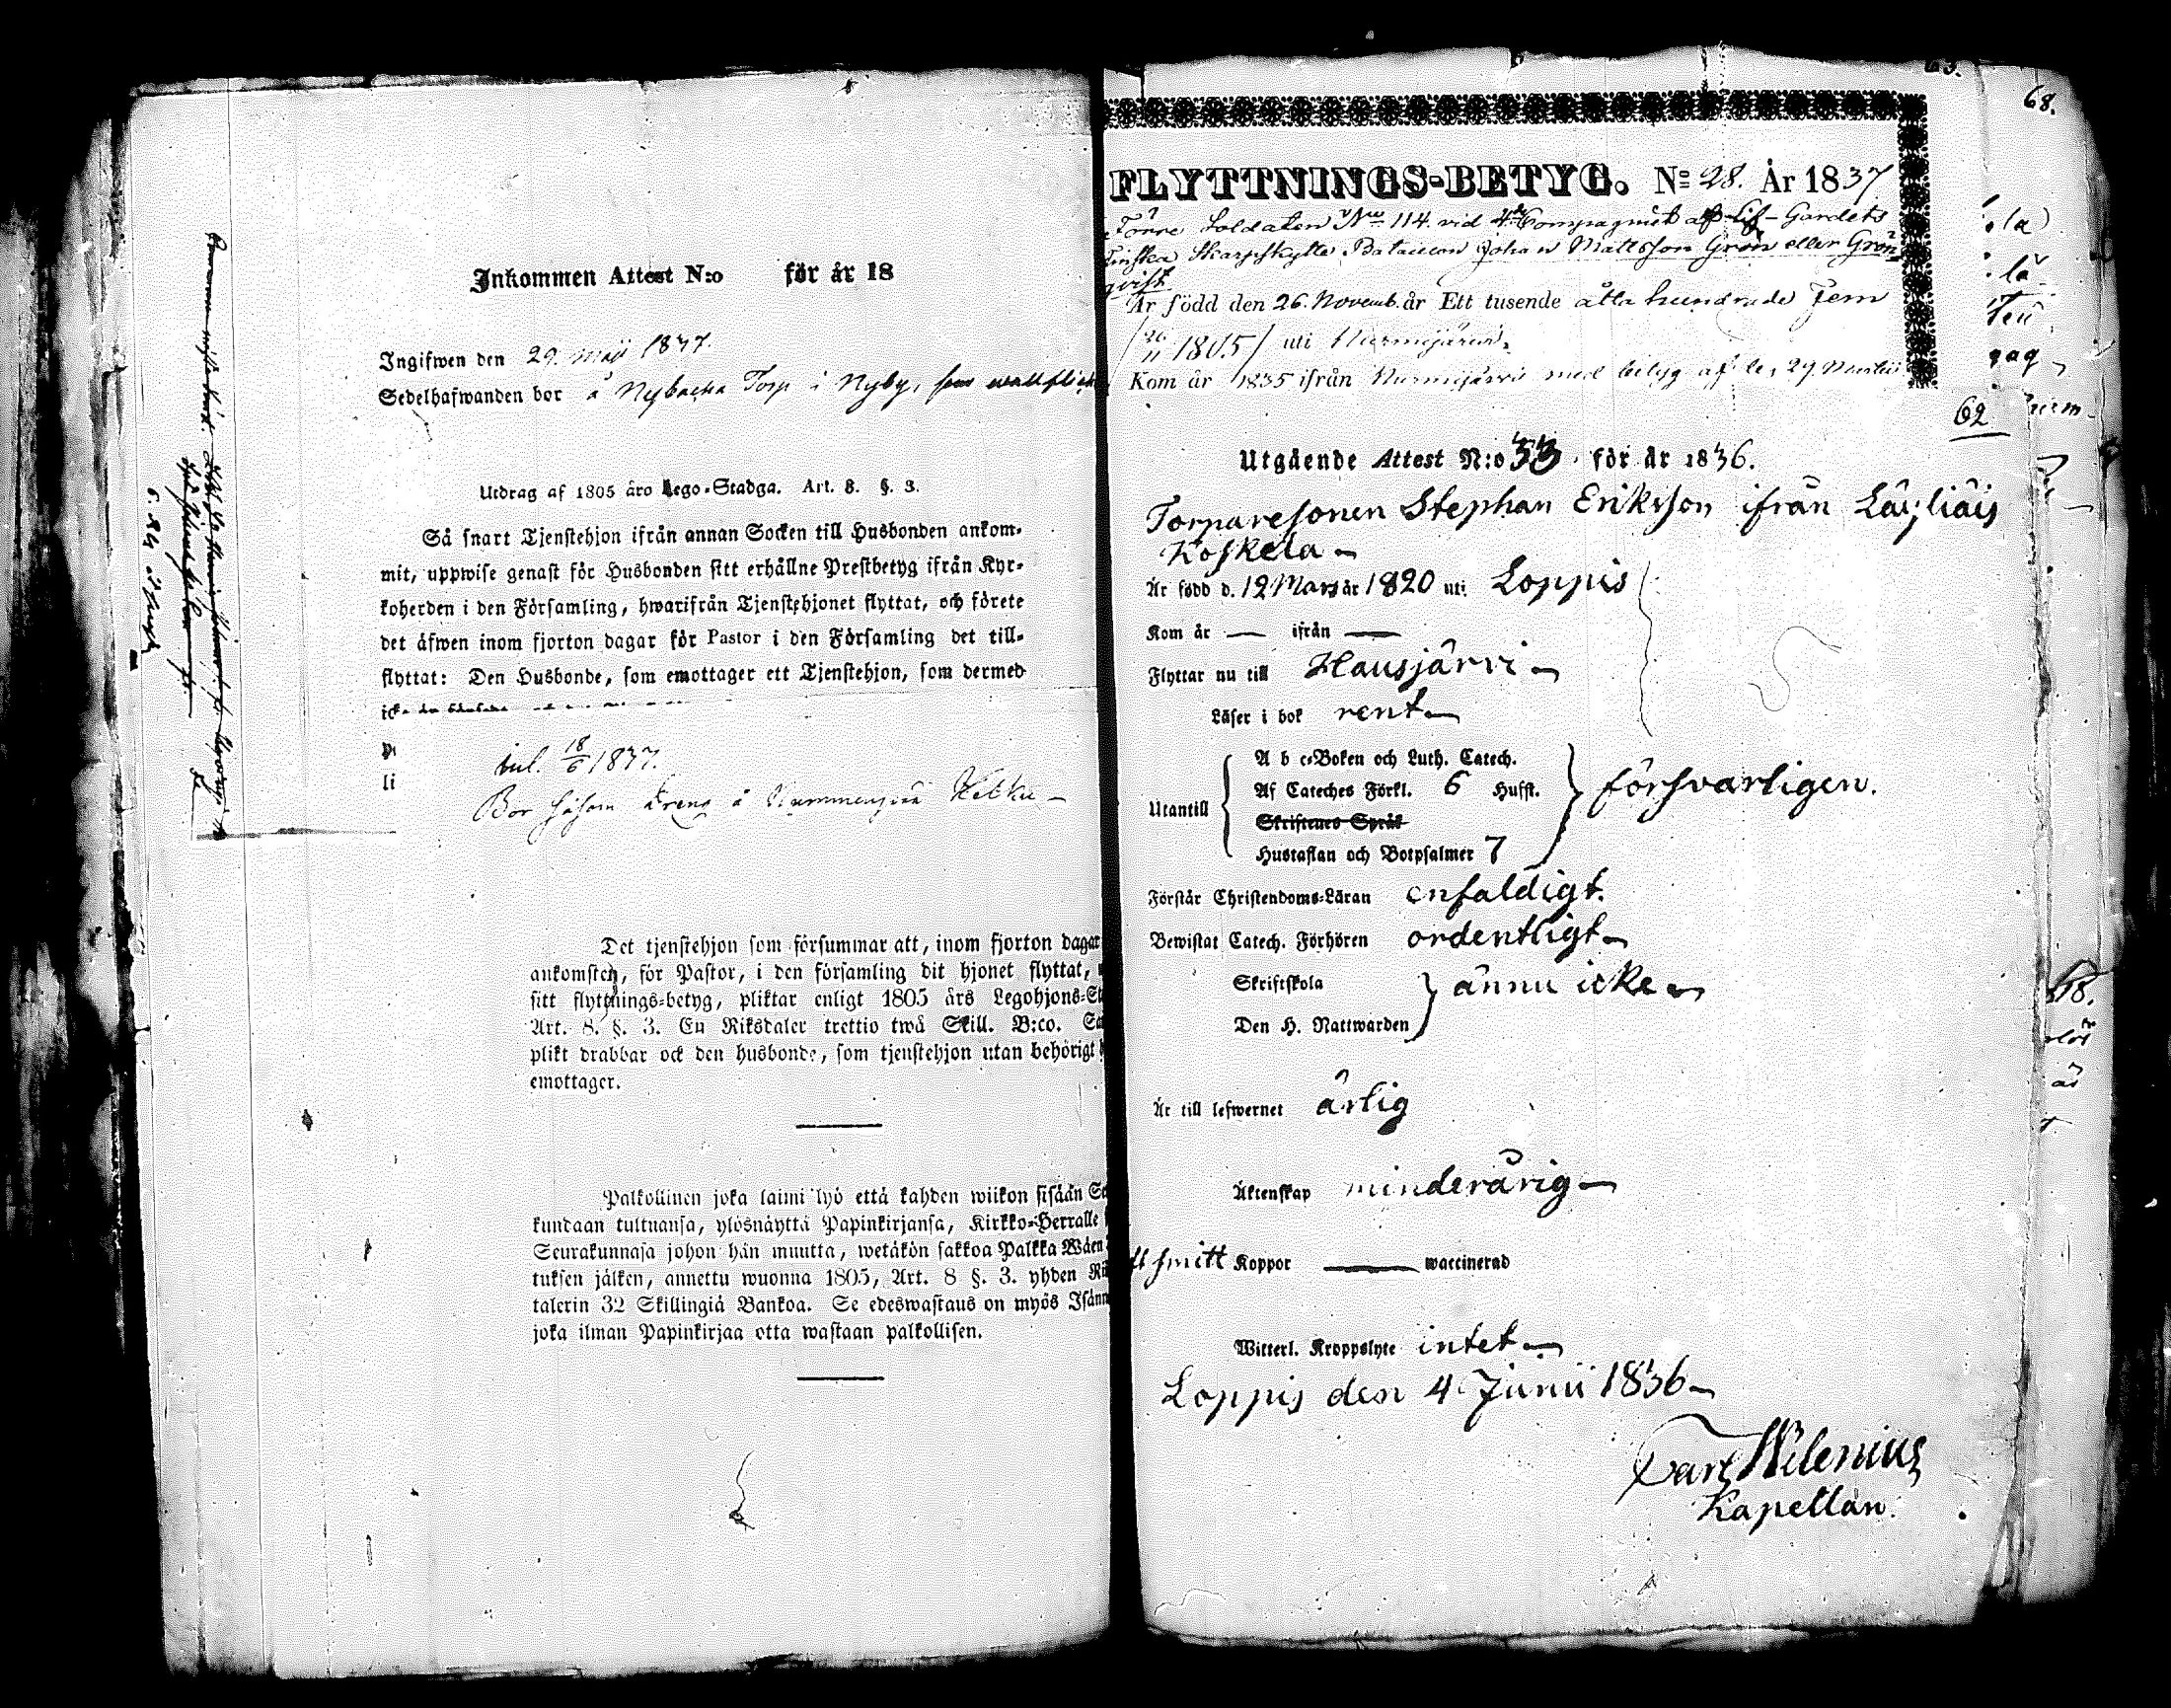 Inkommen Attest N:o för år 18
Ingifwen den 29. Maji 1837.
Sedelhafwanden bor å Nybacka Torp i Nyby, som
Utdrag af 1805 åro Lego-Stadga. Art. 8. §. 3.
Så snart Tjenstehjon ifrån annan Socken till Husbonden ankom-
mit, uppwise genast för Husbonden sitt erhållne Prestbetyg ifrån Kyr-
koherden i den Församling, hwarifrån Tjenstehjonet flyttat, och förete
det äfwen inom fjorton dagar för Pastor i den Församling det till-
flyttat: Den Husbonde, som emottager ett Tjenstehjon, som dermed
li
inl. 18/6 1837.
Bor såsom Dreng å
Det tjenstehjon som försummar att, inom fjorton dagar
ankomsten, för Pastor, i den församling dit hjonet flyttat,
sitt flyttnings-betyg, pliktar enligt 1805 års Legohjons-St
Art. 8. §. 3. En Riksdaler trettio twå Skill. B:co. Sa
plikt drabbar ock den husbonde, som tjenstehjon utan behörigt
emottager.
Palkollinen joka laimi lyö että kahden wiikon sisään Se
kundaan tultuansa, ylösnäyttä Papinkirjansa, Kirkko-Herralle
Seurakunnasa johon hän muutta, wetäkön sakkoa Palkka Wäen
tuksen jälken, annettu wuonna 1805, Art. 8 §. 3. yhden Rii
talerin 32 Skillingiä Bankoa. Se edeswastaus on myös Isänn
joka ilman Papinkirjaa otta wastaan palkollisen.
68.
FLYTTNINGS-BETYG. No 28. År 1837
Förre Soldaten No 114 vid 4de Compagniet af Lif-Gardets
Finska Skarpskytte Bataillon Johan Mattsson Grön eller Grön-
qvist.
Är född den 26. Novemb. år Ett tusende åtta hundrade fem
/26/11 1805/ uti Nurmijärvi.
Kom år 1835 ifrån Nurmijärvi med betyg af den 29. Martii
62
Utgående Attest N:o 53. för år 1836.
Torparesonen Stephan Eriksson ifrån Läyliäis
Koskela
Är född d. 12 Mars år 1820 uti Loppis
Kom år — ifrån —
Flyttar nu till Hausjärvi
Läser i bok rent
Utantill
A b c-Boken och Luth. Catech.
Af Cateches Förkl. 6 Hufst.
Skriftenes Språk
Hustaflan och Botpsalmer 7
försvarligen.
Förstår Christendoms-Läran enfaldigt.
Bewistat Catech. Förhören ordentligt
Skriftskola
Den H. Nattwarden
ännu icke
Är till lefwernet ärlig
Äktenskap minderårig
Koppor — waccinerad
Witterl. Kroppslyte intet
Loppis den 4 Junii 1836
Carl Wilenius
Kapellan.